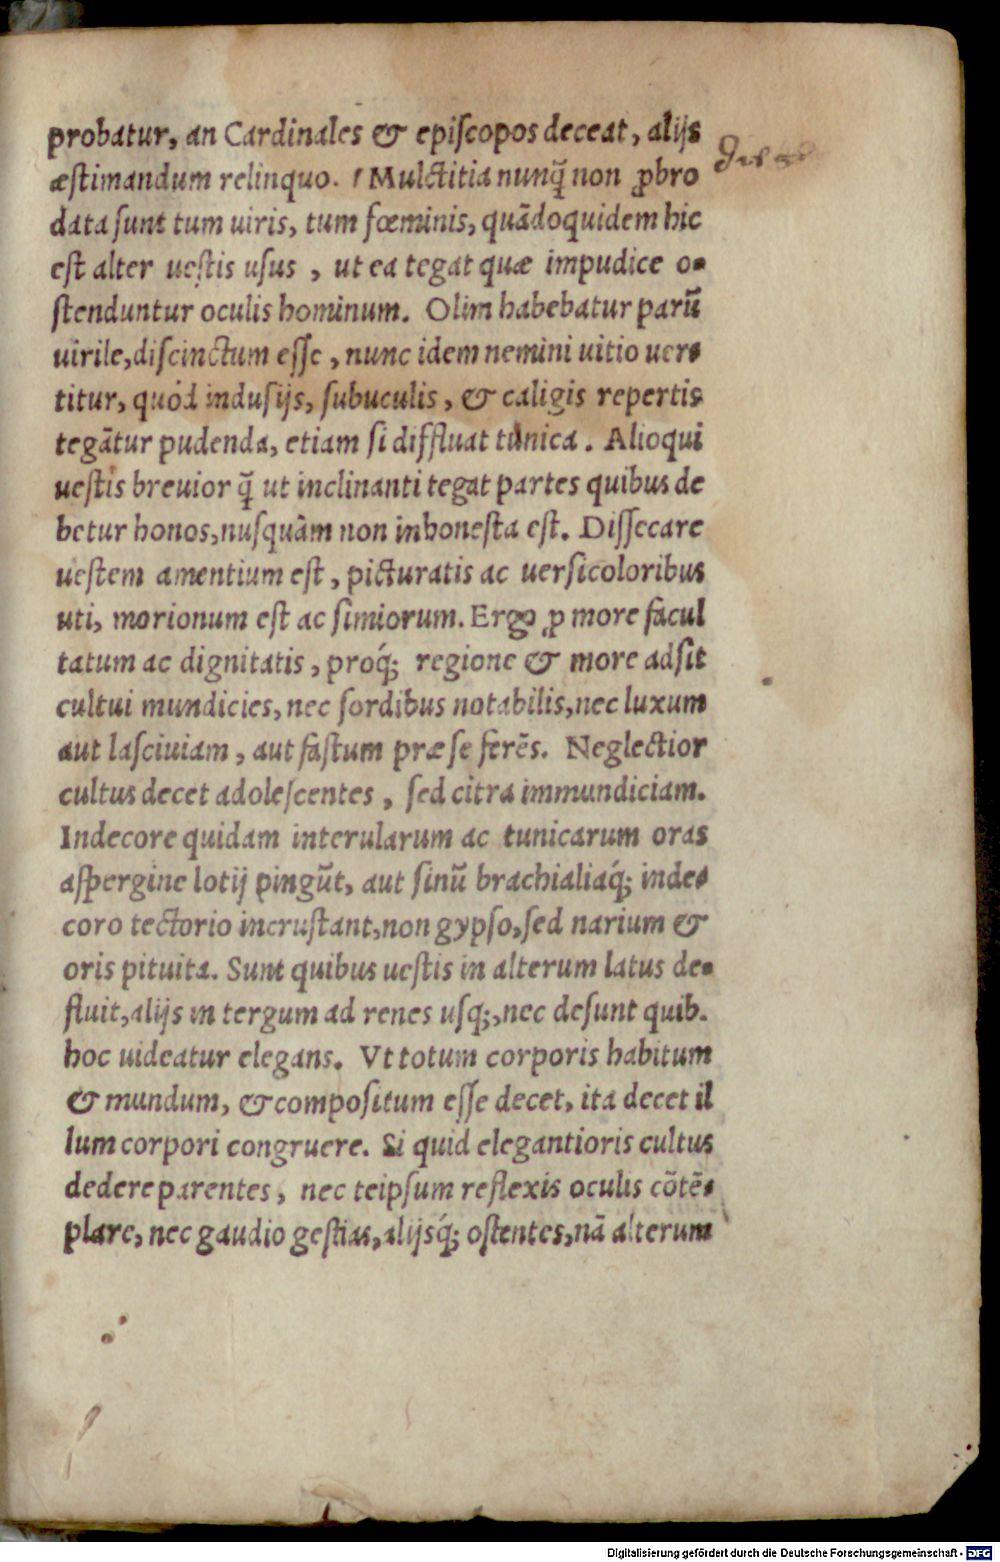 probatur, an Cardinales & epiſcopos deceat, alijs
æſtimandum relinquo. Mulctitia nunq̃ non ꝓbro
data ſunt tum uiris, tum fœminis, quãdoquidem hic
eſt alter ueſtis uſus , ut ea tegat quæ impudice o-
ſtenduntur oculis hominum. Olim habebatur parũ
uirile, diſcinctum eſſe , nunc idem nemini uitio uer-
titur, quód induſijs, ſubuculis , & caligis repertis
tegãtur pudenda, etiam ſi diffluat tunica . Alioqui
ueſtis breuior q̃ ut inclinanti tegat partes quibus de
betur honos, nuſquàm non inhoneſta eſt. Diſſecare
ueſtem amentium eſt , picturatis ac uerſicoloribus
uti, morionum eſt ac ſimiorum. Ergo ꝓ more facul
tatum ac dignitatis , proq́; regione & more adſit
cultui mundicies, nec ſordibus notabilis, nec luxum
aut laſciuiam , aut faſtum præ ſe ferẽs. Neglectior
cultus decet adoleſcentes , ſed citra immundiciam.
Indecore quidam interularum ac tunicarum oras
aſpergine lotij pingũt, aut ſinũ brachialiaq́; inde-
coro tectorio incruſtant, non gypſo, ſed narium &
oris pituita. Sunt quibus ueſtis in alterum latus de-
fluit, alijs in tergum ad renes uſq;, nec deſunt quib.
hoc uideatur elegans. Vt totum corporis habitum
& mundum, & compoſitum eſſe decet, ita decet il
lum corpori congruere. Si quid elegantioris cultus
dedere parentes , nec teipſum reflexis oculis cõtẽ-
plare, nec gaudio geſtias, alijsq́; oſtentes, nã alterum
Digitalisierung gefördert durch die Deutsche Forschungsgemeinschaft - DFG